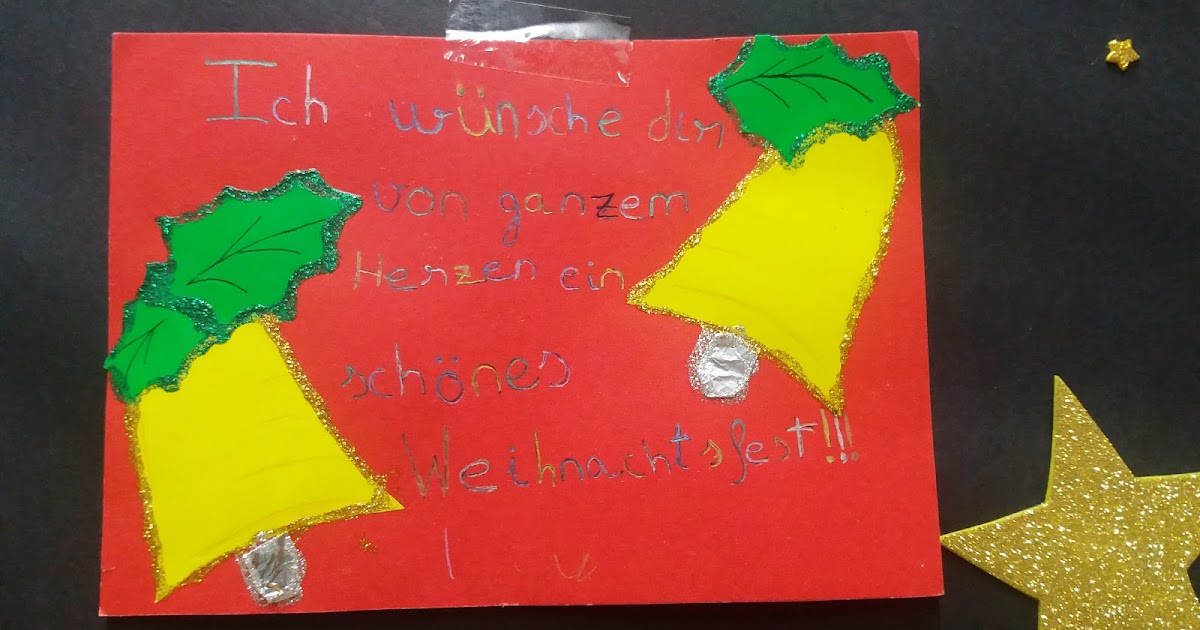 Ich wünsche dir
von ganzem
Herzen ein
schönes
Weihnachtsfest!!!